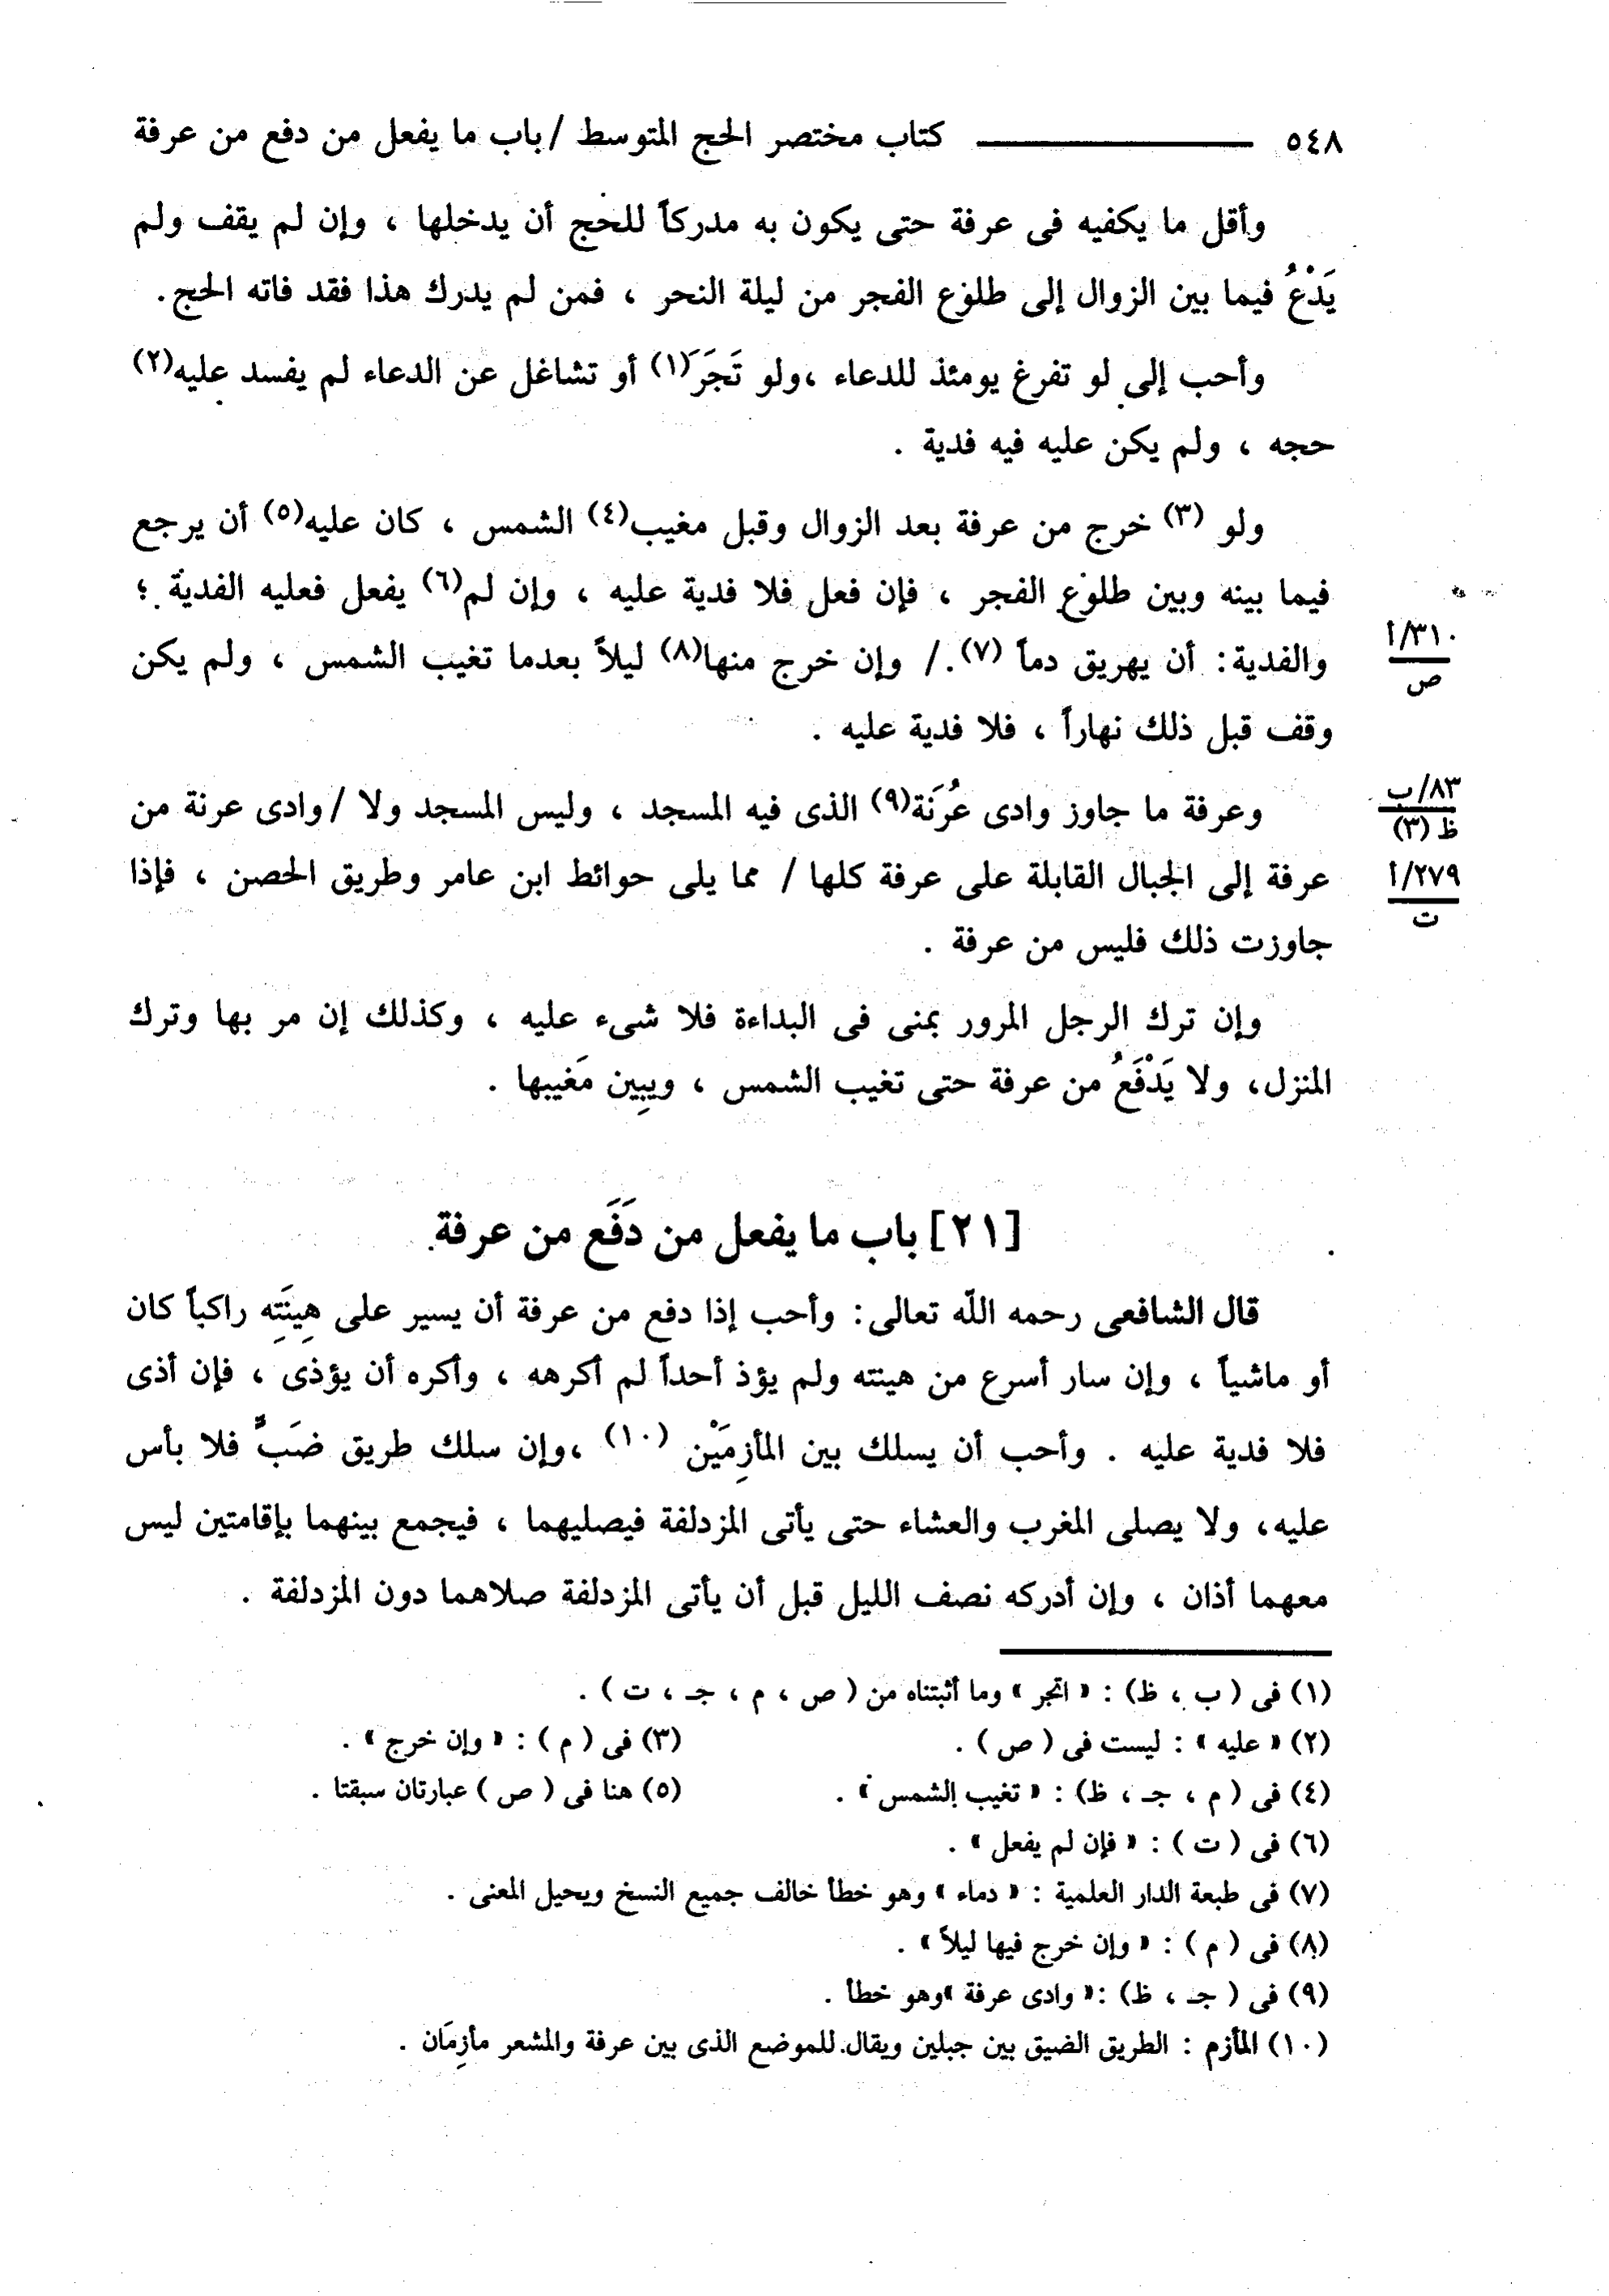 ٥٤٨ ــــــــــــ كتاب مختصر الحج المتوسط / باب ما يفعل من دفع من عرفة
وأقل ما يكفيه فى عرفة حتى يكون به مدركاً للحج أن يدخلها ، وإن لم يقف ولم
يَدْعُ فيما بين الزوال إلى طلوع الفجر من ليلة النحر ، فمن لم يدرك هذا فقد فاته الحج.
وأحب إلى لو تفرغ يومئذ للدعاء ،ولو تَجَرَ(١) أو تشاغل عن الدعاء لم يفسد عليه(٢)
حجه ، ولم يكن عليه فيه فدية .
ولو (٣) خرج من عرفة بعد الزوال وقبل مغيب(٤) الشمس ، كان عليه(٥) أن يرجع
فيما بينه وبين طلوع الفجر ، فإن فعل فلا فدية عليه ، وإن لم(٦) يفعل فعليه الفدية ؛
والفدية: أن يهريق دماً (٧). / وإن خرج منها(٨) ليلاً بعدما تغيب الشمس ، ولم يكن
٣١٠/أ
ص
وقف قبل ذلك نهاراً ، فلا فدية عليه .
وعرفة ما جاوز وادى عُرَنَة(٩) الذى فيه المسجد ، وليس المسجد ولا / وادى عرنة من
٨٣/ب
ظ (٣)
عرفة إلى الجبال القابلة على عرفة كلها / مما يلى حوائط ابن عامر وطريق الحصن ، فإذا
٢٧٩/أ
ت
جاوزت ذلك فليس من عرفة .
وإن ترك الرجل المرور بمنى فى البداءة فلا شىء عليه ، وكذلك إن مر بها وترك
المنزل، ولا يَدْفَعُ من عرفة حتى تغيب الشمس ، ويبِين مَغيبها .
[٢١] باب ما يفعل من دَفَع من عرفة
قال الشافعى رحمه الله تعالى: وأحب إذا دفع من عرفة أن يسير على هِينَتِه راكباً كان
أو ماشياً ، وإن سار أسرع من هينته ولم يؤذ أحداً لم أكرهه ، وأكره أن يؤذى ، فإن أذى
فلا فدية عليه . وأحب أن يسلك بين المأزِمَيْن (١٠) ،وإن سلك طريق ضَبٍّ فلا بأس
عليه، ولا يصلى المغرب والعشاء حتى يأتى المزدلفة فيصليهما ، فيجمع بينهما بإقامتين ليس
معهما أذان ، وإن أدركه نصف الليل قبل أن يأتى المزدلفة صلاهما دون المزدلفة .
(١) فى ( ب ، ظ) : « اتجر » وما أثبتناه من ( ص ، م ، جـ ، ت ) .
(٢) « عليه » : ليست فى ( ص ) . (٣) فى ( م ) : « وإن خرج » .
(٤) فى ( م ، جـ ، ظ) : « تغيب الشمس » . (٥) هنا فى ( ص ) عبارتان سبقتا .
(٦) فى ( ت ) : « فإن لم يفعل » .
(٧) فى طبعة الدار العلمية : « دماء » وهو خطأ خالف جميع النسخ ويحيل المعنى .
(٨) فى ( م ) : « وإن خرج فيها ليلاً » .
(٩) فى ( جـ ، ظ) :« وادى عرفة »وهو خطأ .
(١٠) المأزم : الطريق الضيق بين جبلين ويقال للموضع الذى بين عرفة والمشعر مأزِمَان .